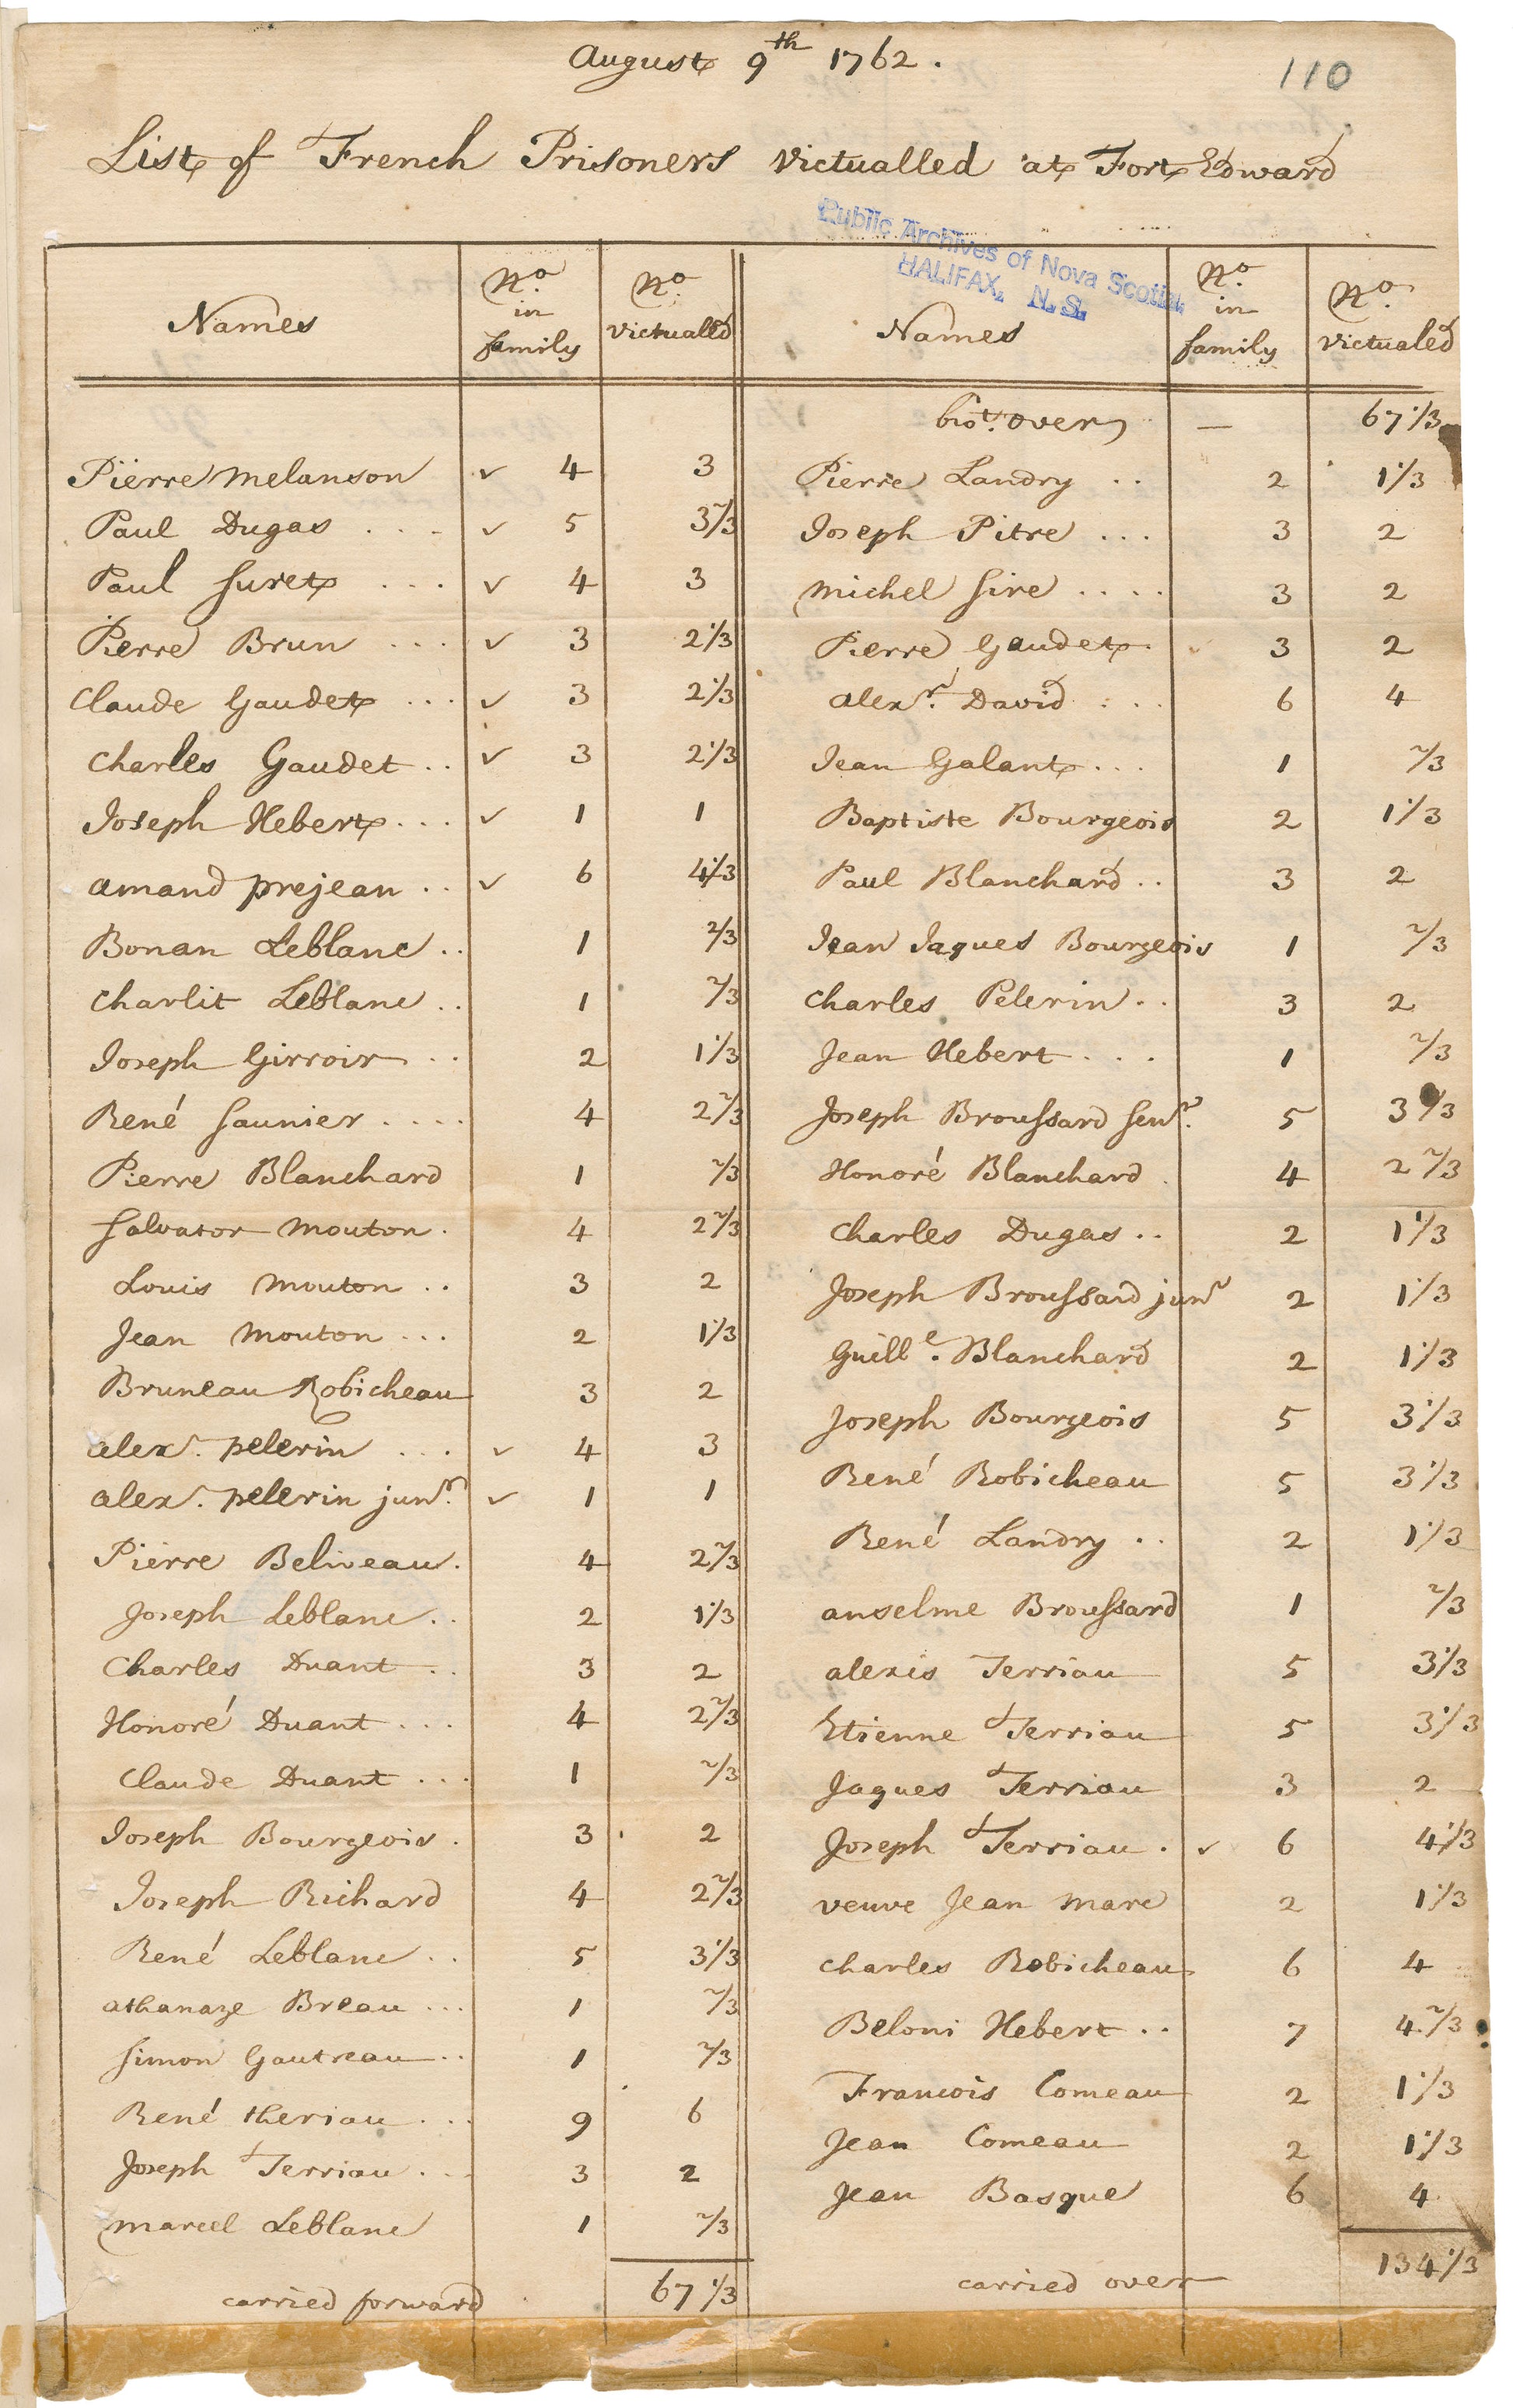 August 9th 1762.
110
List of French Prisoners victualled at Fort Edward
Public Archives of Nova Scotia
HALIFAX, N.S.
Names No. in family No. victualed
Pierre melanson ✓ 4 3
Paul Dugas ... ✓ 5 3 2/3
Paul Suret ... ✓ 4 3
Pierre Brun ... ✓ 3 2 1/3
Claude Gaudet ... ✓ 3 2 1/3
Charles Gaudet .. ✓ 3 2 1/3
Joseph Hebert ... ✓ 1 1
amand prejean .. ✓ 6 4 1/3
Bonan Leblanc .. 1 2/3
Charlit Leblanc .. 1 2/3
Joseph Girroir .. 2 1 1/3
René Saunier .... 4 2 2/3
Pierre Blanchard 1 2/3
Salvator Mouton . 4 2 2/3
Louis Mouton .. 3 2
Jean Mouton ... 2 1 1/3
Bruneau Robicheau 3 2
alexr. pelerin ... ✓ 4 3
alexr. pelerin junr. ✓ 1 1
Pierre Beliveau . 4 2 2/3
Joseph Leblanc .. 2 1 1/3
Charles Duant .. 3 2
Honoré Duant ... 4 2 2/3
Claude Duant ... 1 2/3
Joseph Bourgeois . 3 2
Joseph Richard 4 2 2/3
René Leblanc .. 5 3 1/3
athanaze Breau ... 1 2/3
Simon Gautreau .. 1 2/3
René theriau ... 9 6
Joseph Terriau ... 3 2
marcel Leblanc 1 2/3
carried forward 67 1/3
Names No. in family No. victualed
brot. over — 67 1/3
Pierre Landry .. 2 1 1/3
Joseph Pitre ... 3 2
michel Sire .... 3 2
Pierre Gaudet . ✓ 3 2
alexr. David ... 6 4
Jean Galant ... 1 2/3
Baptiste Bourgeois 2 1 1/3
Paul Blanchard .. 3 2
Jean Jaques Bourgeois 1 2/3
Charles Pelerin .. 3 2
Jean Hebert ... 1 2/3
Joseph Broussard Senr. 5 3 1/3
Honoré Blanchard . 4 2 2/3
Charles Dugas .. 2 1 1/3
Joseph Broussard junr 2 1 1/3
Guille. Blanchard 2 1 1/3
Joseph Bourgeois 5 3 1/3
René Robicheau 5 3 1/3
René Landry .. 2 1 1/3
anselme Broussard 1 2/3
alexis Terriau 5 3 1/3
Etienne Terriau 5 3 1/3
Jaques Terriau 3 2
Joseph Terriau . ✓ 6 4 1/3
veuve Jean marc 2 1 1/3
Charles Robicheau 6 4
Beloni Hebert .. 7 4 2/3
Francois Comeau 2 1 1/3
Jean Comeau 2 1 1/3
Jean Basque 6 4
carried over 134 1/3